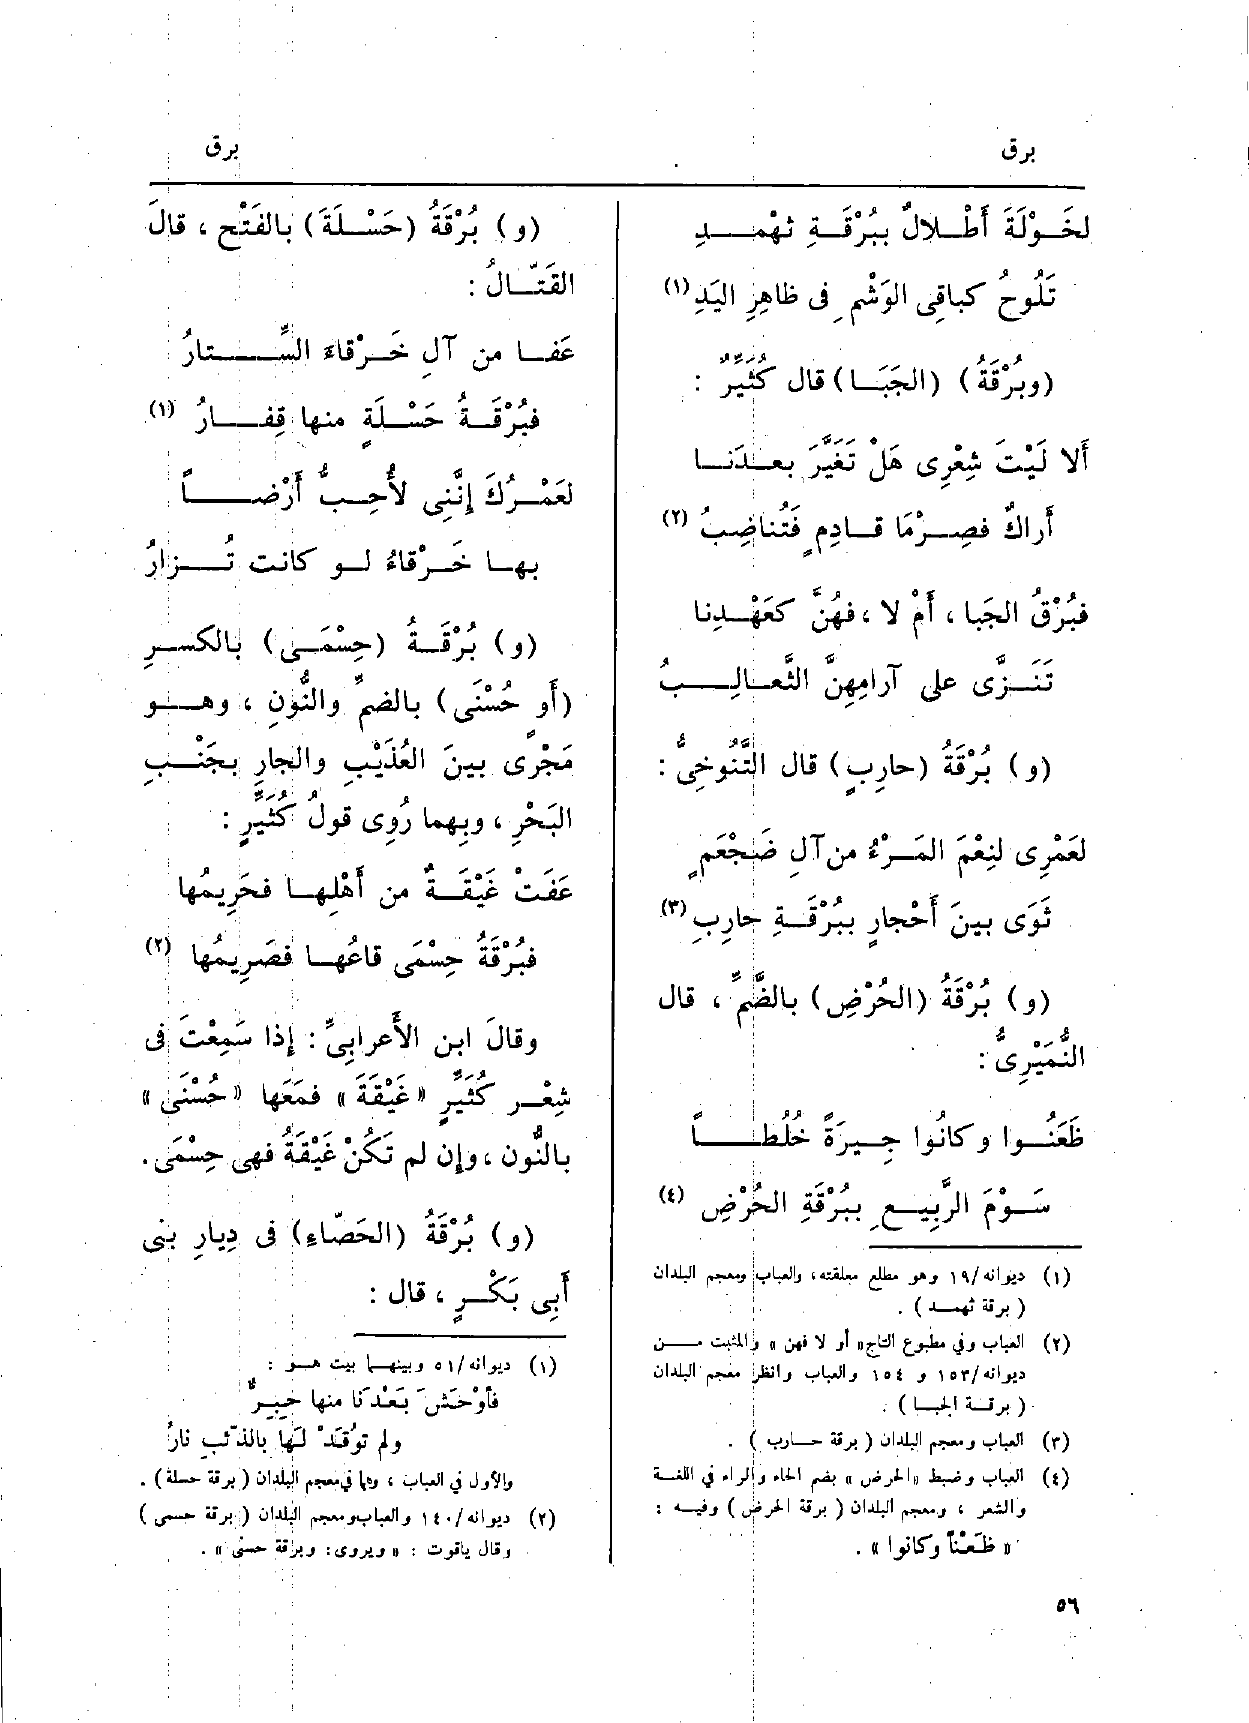 برق
برق
لخَوْلَةَ أَطْلالٌ ببُرْقَةِ ثَهْمَدِ
تَلُوحُ كباقِى الوَشْمِ فى ظاهِرِ اليَدِ (١)
(وبُرْقَةُ) (الجَبَا) قال كُثَيِّرٌ :
أَلا لَيْتَ شِعْرِى هَلْ تَغَيَّرَ بعدَنَا
أَراكٌ فصِرْمَا قادِمٍ فَتُناضِبُ (٢)
فبُرْقُ الجَبا ، أَمْ لا ، فهُنَّ كعَهْدِنا
تَنَزَّى على آرامِهِنَّ الثَّعالِبُ
(و) بُرْقَةُ (حارِبٍ) قال التَّنُوخِىُّ :
لعَمْرِى لنِعْمَ المَرْءُ من آلِ ضَجْعَمٍ
ثَوَى بينَ أَحْجارٍ ببُرْقَةِ حارِبِ (٣)
(و) بُرْقَةُ (الحُرُضِ) بالضَّمِّ ، قال
النُّمَيْرِىُّ :
ظَعَنُوا وكانُوا جِيرَةً خُلُطاً
سَوْمَ الرَّبِيعِ ببُرْقَةِ الحُرُضِ (٤)
(١) ديوانه/١٩ وهو مطلع معلقته، والعباب ومعجم البلدان
(برقة ثهمد) .
(٢) العباب وفي مطبوع التاج «أو لا فهن» والمثبت من
ديوانه/١٥٣ و ١٥٤ والعباب وانظر معجم البلدان
(برقة الجبا) .
(٣) العباب ومعجم البلدان (برقة حارب) .
(٤) العباب وضبط «الحرض» بضم الحاء والراء في اللغة
والشعر ، ومعجم البلدان (برقة الحرض) وفيه :
« ظَعَنْاً وكانوا » .
(و) بُرْقَةُ (حَسْلَةَ) بالفَتْح ، قالَ
القَتّالُ :
عَفا من آلِ خَرْقاءَ السِّتارُ
فبُرْقَةُ حَسْلَةٍ منها قِفارُ (١)
لعَمْرُكَ إِنَّنِى لأُحِبُّ أَرْضاً
بها خَرْقاءُ لو كانت تُزارُ
(و) بُرْقَةُ (حِسْمَى) بالكسرِ
(أَو حُسْنَى) بالضمِّ والنُّونِ ، وهو
مَجْرًى بينَ العُذَيْبِ والجارِ بجَنْبِ
البَحْرِ ، وبِهما رُوِى قولُ كُثَيِّرٍ :
عَفَتْ غَيْقَةٌ من أَهْلِها فحَرِيمُها
فبُرْقَةُ حِسْمَى قاعُها فصَرِيمُها (٢)
وقالَ ابن الأَعرابِىِّ : إِذا سَمِعْتَ فى
شِعْر كُثَيِّرٍ «غَيْقَةَ» فمَعَها «حُسْنَى»
بالنُّون ، وإِن لم تَكُنْ غَيْقَةُ فهى حِسْمَى.
(و) بُرْقَةُ (الحَصّاءِ) فى دِيارِ بنى
أَبِى بَكْرٍ ، قال :
(١) ديوانه/٥١ وبينهما بيت هو :
فأَوْحَشَ بَعْدَنَا منها حِبِرٌّ
ولم تُوقَدْ لَهَا بالذِّئبِ نارُ
والأول في العباب ، وهما في معجم البلدان (برقة حسلة) .
(٢) ديوانه/١٤٠ والعباب ومعجم البلدان (برقة حسمى)
وقال ياقوت : «ويروى: وبرقة حسنى» .
٥٦